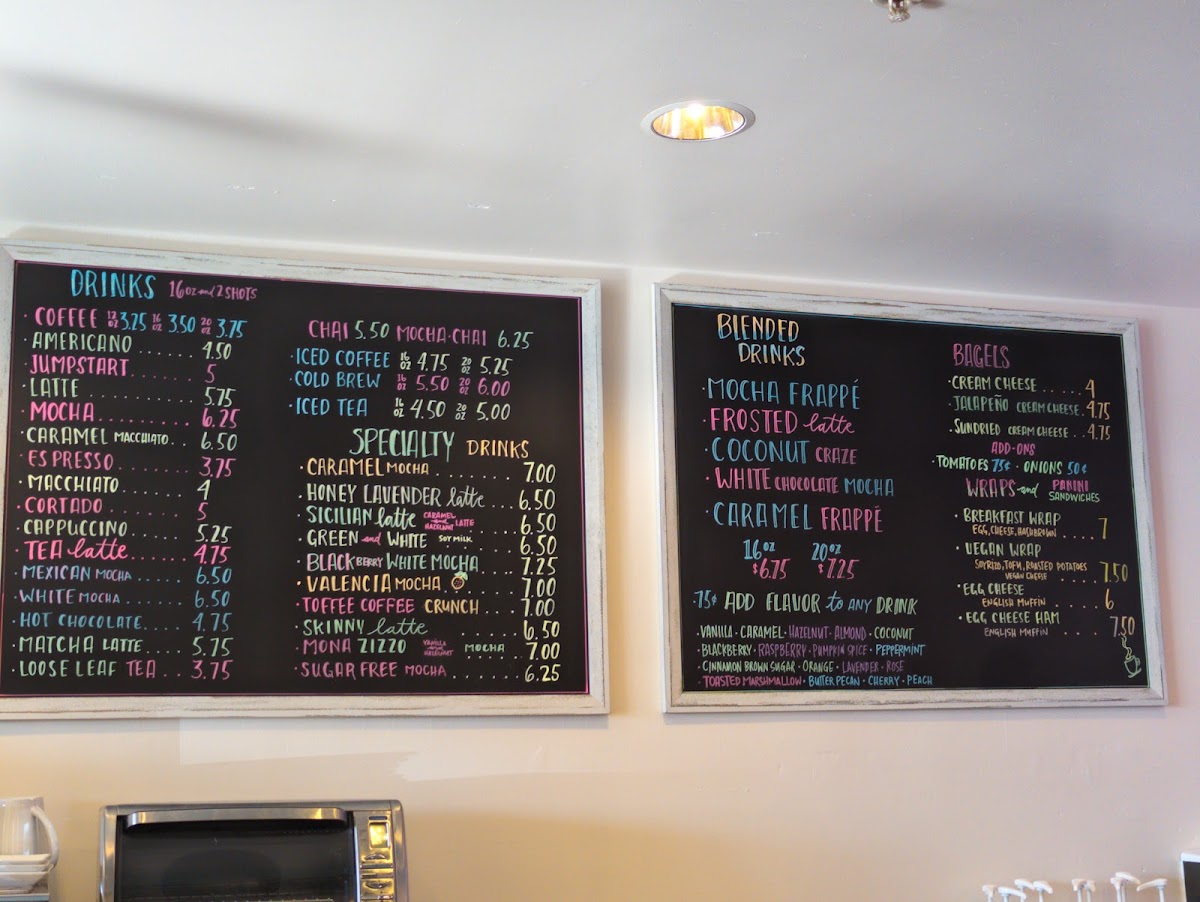 DRINKS 16 oz and 2 SHOTS
· COFFEE 12 oz 3.25 16 oz 3.50 20 oz 3.75
· AMERICANO ....... 4.50
· JUMPSTART ....... 5
· LATTE ....... 5.75
· MOCHA ....... 6.25
· CARAMEL MACCHIATO .. 6.50
· ESPRESSO ....... 3.75
· MACCHIATO ....... 4
· CORTADO ....... 5
· CAPPUCCINO ...... 5.25
· TEA latte ....... 4.75
· MEXICAN MOCHA ..... 6.50
· WHITE MOCHA ...... 6.50
· HOT CHOCOLATE .... 4.75
· MATCHA LATTE .... 5.75
· LOOSE LEAF TEA .. 3.75
CHAI 5.50 MOCHA·CHAI 6.25
· ICED COFFEE 16 OZ 4.75 20 OZ 5.25
· COLD BREW 16 OZ 5.50 20 OZ 6.00
· ICED TEA 16 OZ 4.50 20 OZ 5.00
SPECIALTY DRINKS
· CARAMEL MOCHA ....... 7.00
· HONEY LAVENDER latte ... 6.50
SICILIAN latte CARAMEL and HAZELNUT LATTE 6.50
· GREEN and WHITE SOY MILK ... 6.50
BLACKBERRY WHITE MOCHA ... 7.25
· VALENCIA MOCHA ..... 7.00
· TOFFEE COFFEE CRUNCH ... 7.00
· SKINNY latte ....... 6.50
· MONA ZIZZO VANILLA and HAZELNUT MOCHA ... 7.00
· SUGAR FREE MOCHA ....... 6.25
BLENDED
DRINKS
· MOCHA FRAPPÉ
· FROSTED latte
· COCONUT CRAZE
· WHITE CHOCOLATE MOCHA
· CARAMEL FRAPPÉ
16 oz 20 oz
$6.75 $7.25
·75¢ ADD FLAVOR to ANY DRINK
VANILLA · CARAMEL · HAZELNUT · ALMOND · COCONUT
· BLACKBERRY · RASPBERRY · PUMPKIN SPICE · PEPPERMINT
· CINNAMON BROWN SUGAR · ORANGE · LAVENDER · ROSE
· TOASTED MARSHMALLOW · BUTTER PECAN · CHERRY · PEACH
BAGELS
· CREAM CHEESE .... 4
· JALAPEÑO CREAM CHEESE . 4.75
· SUNDRIED CREAM CHEESE .. 4.75
ADD-ONS
· TOMATOES 75¢ · ONIONS 50¢
WRAPS and PANINI SANDWICHES
· BREAKFAST WRAP
EGG, CHEESE, HASHBROWN .... 7
· VEGAN WRAP
SOYRIZO, TOFU, ROASTED POTATOES
VEGAN CHEESE .... 7.50
· EGG CHEESE
ENGLISH MUFFIN .... 6
· EGG CHEESE HAM
ENGLISH MUFFIN .... 7.50